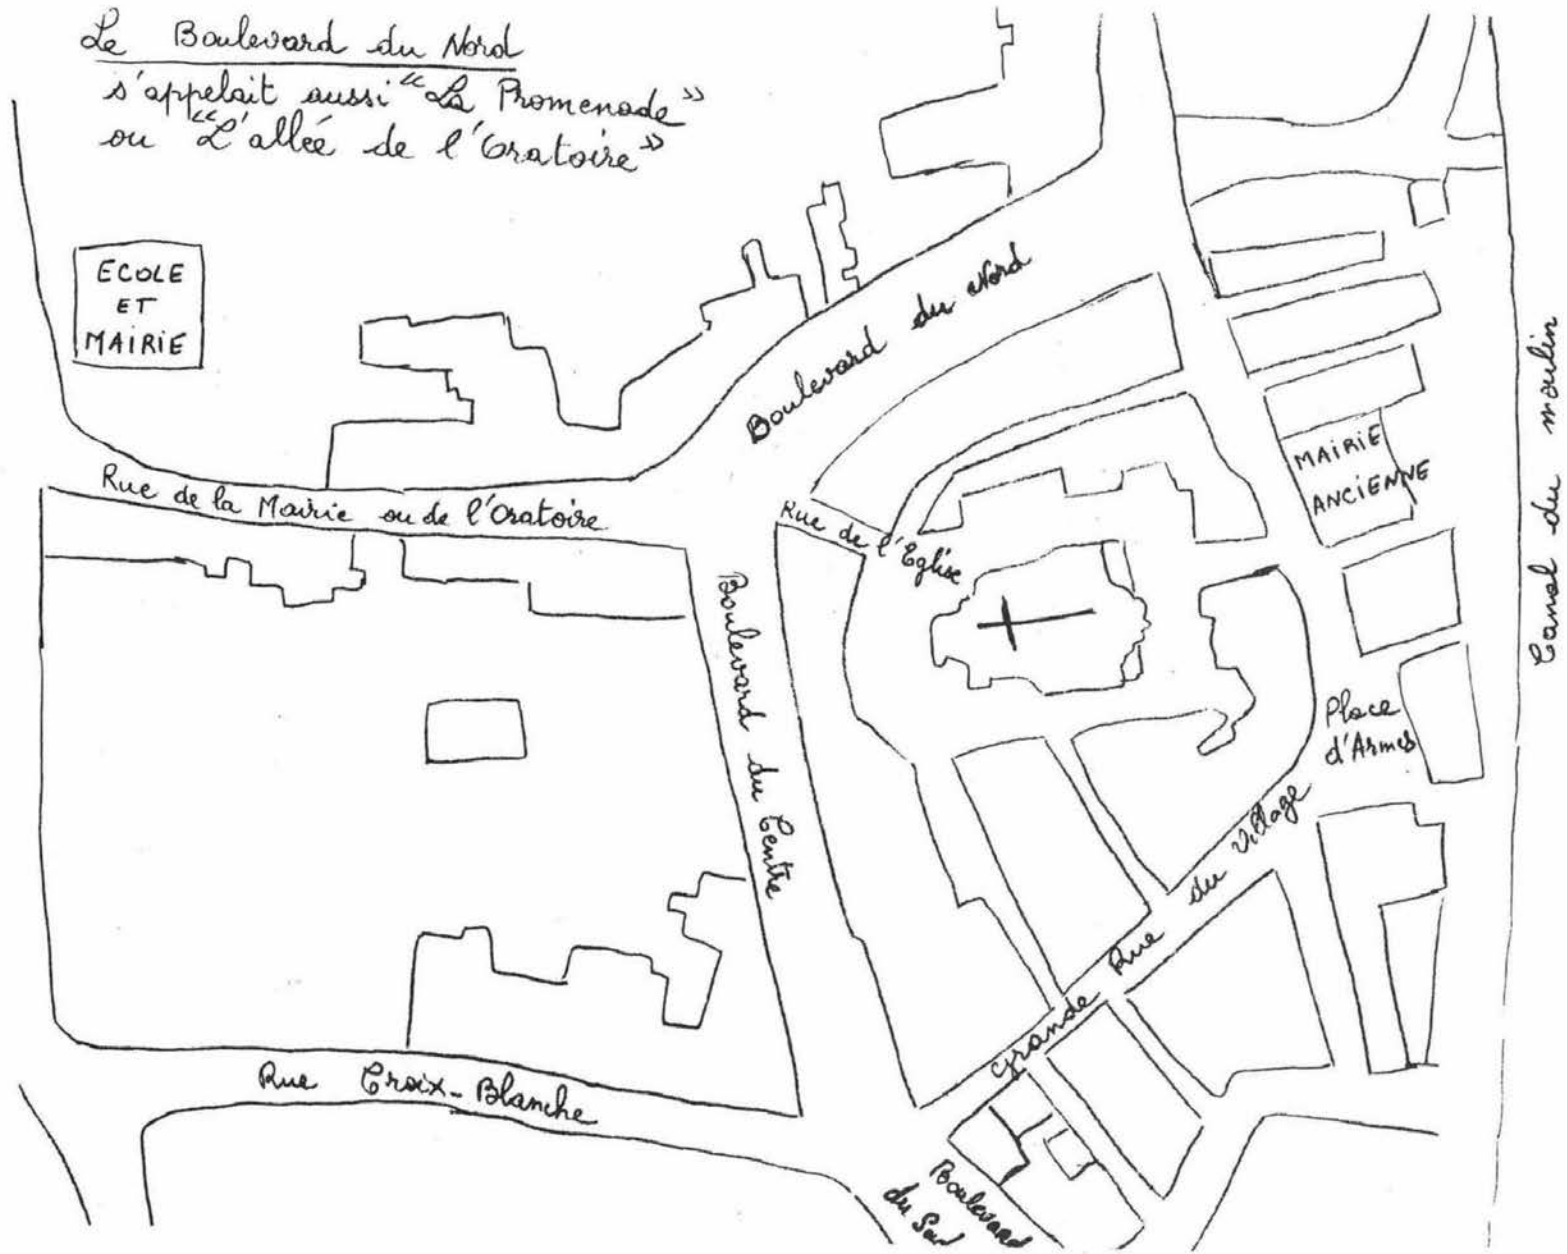 Le Boulevard du Nord
s'appelait aussi "La Promenade"
ou "L'allée de l'Oratoire"
ECOLE
ET
MAIRIE
Boulevard du Nord
Rue de la Mairie ou de l'Oratoire
Rue de l'Eglise
MAIRIE
ANCIENNE
Canal du moulin
Boulevard du Centre
Place
d'Armes
Grande Rue du Village
Rue Croix-Blanche
Boulevard
du Sud